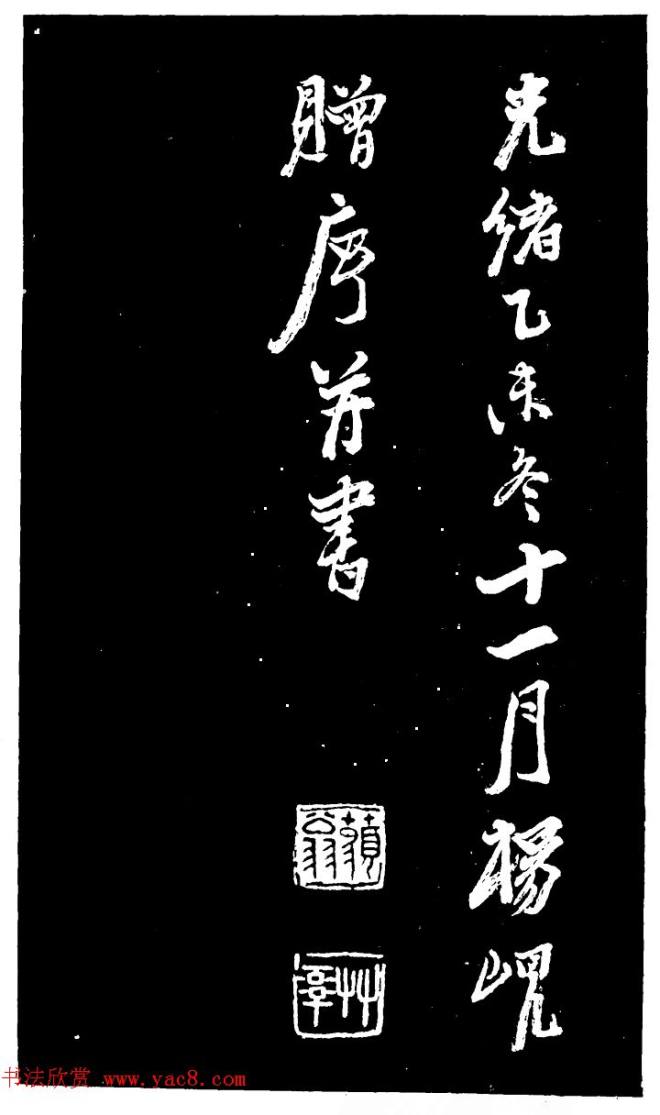 光緒乙未冬十一月楊峴
贈序并書
藐翁
书法欣赏 www.yac8.com